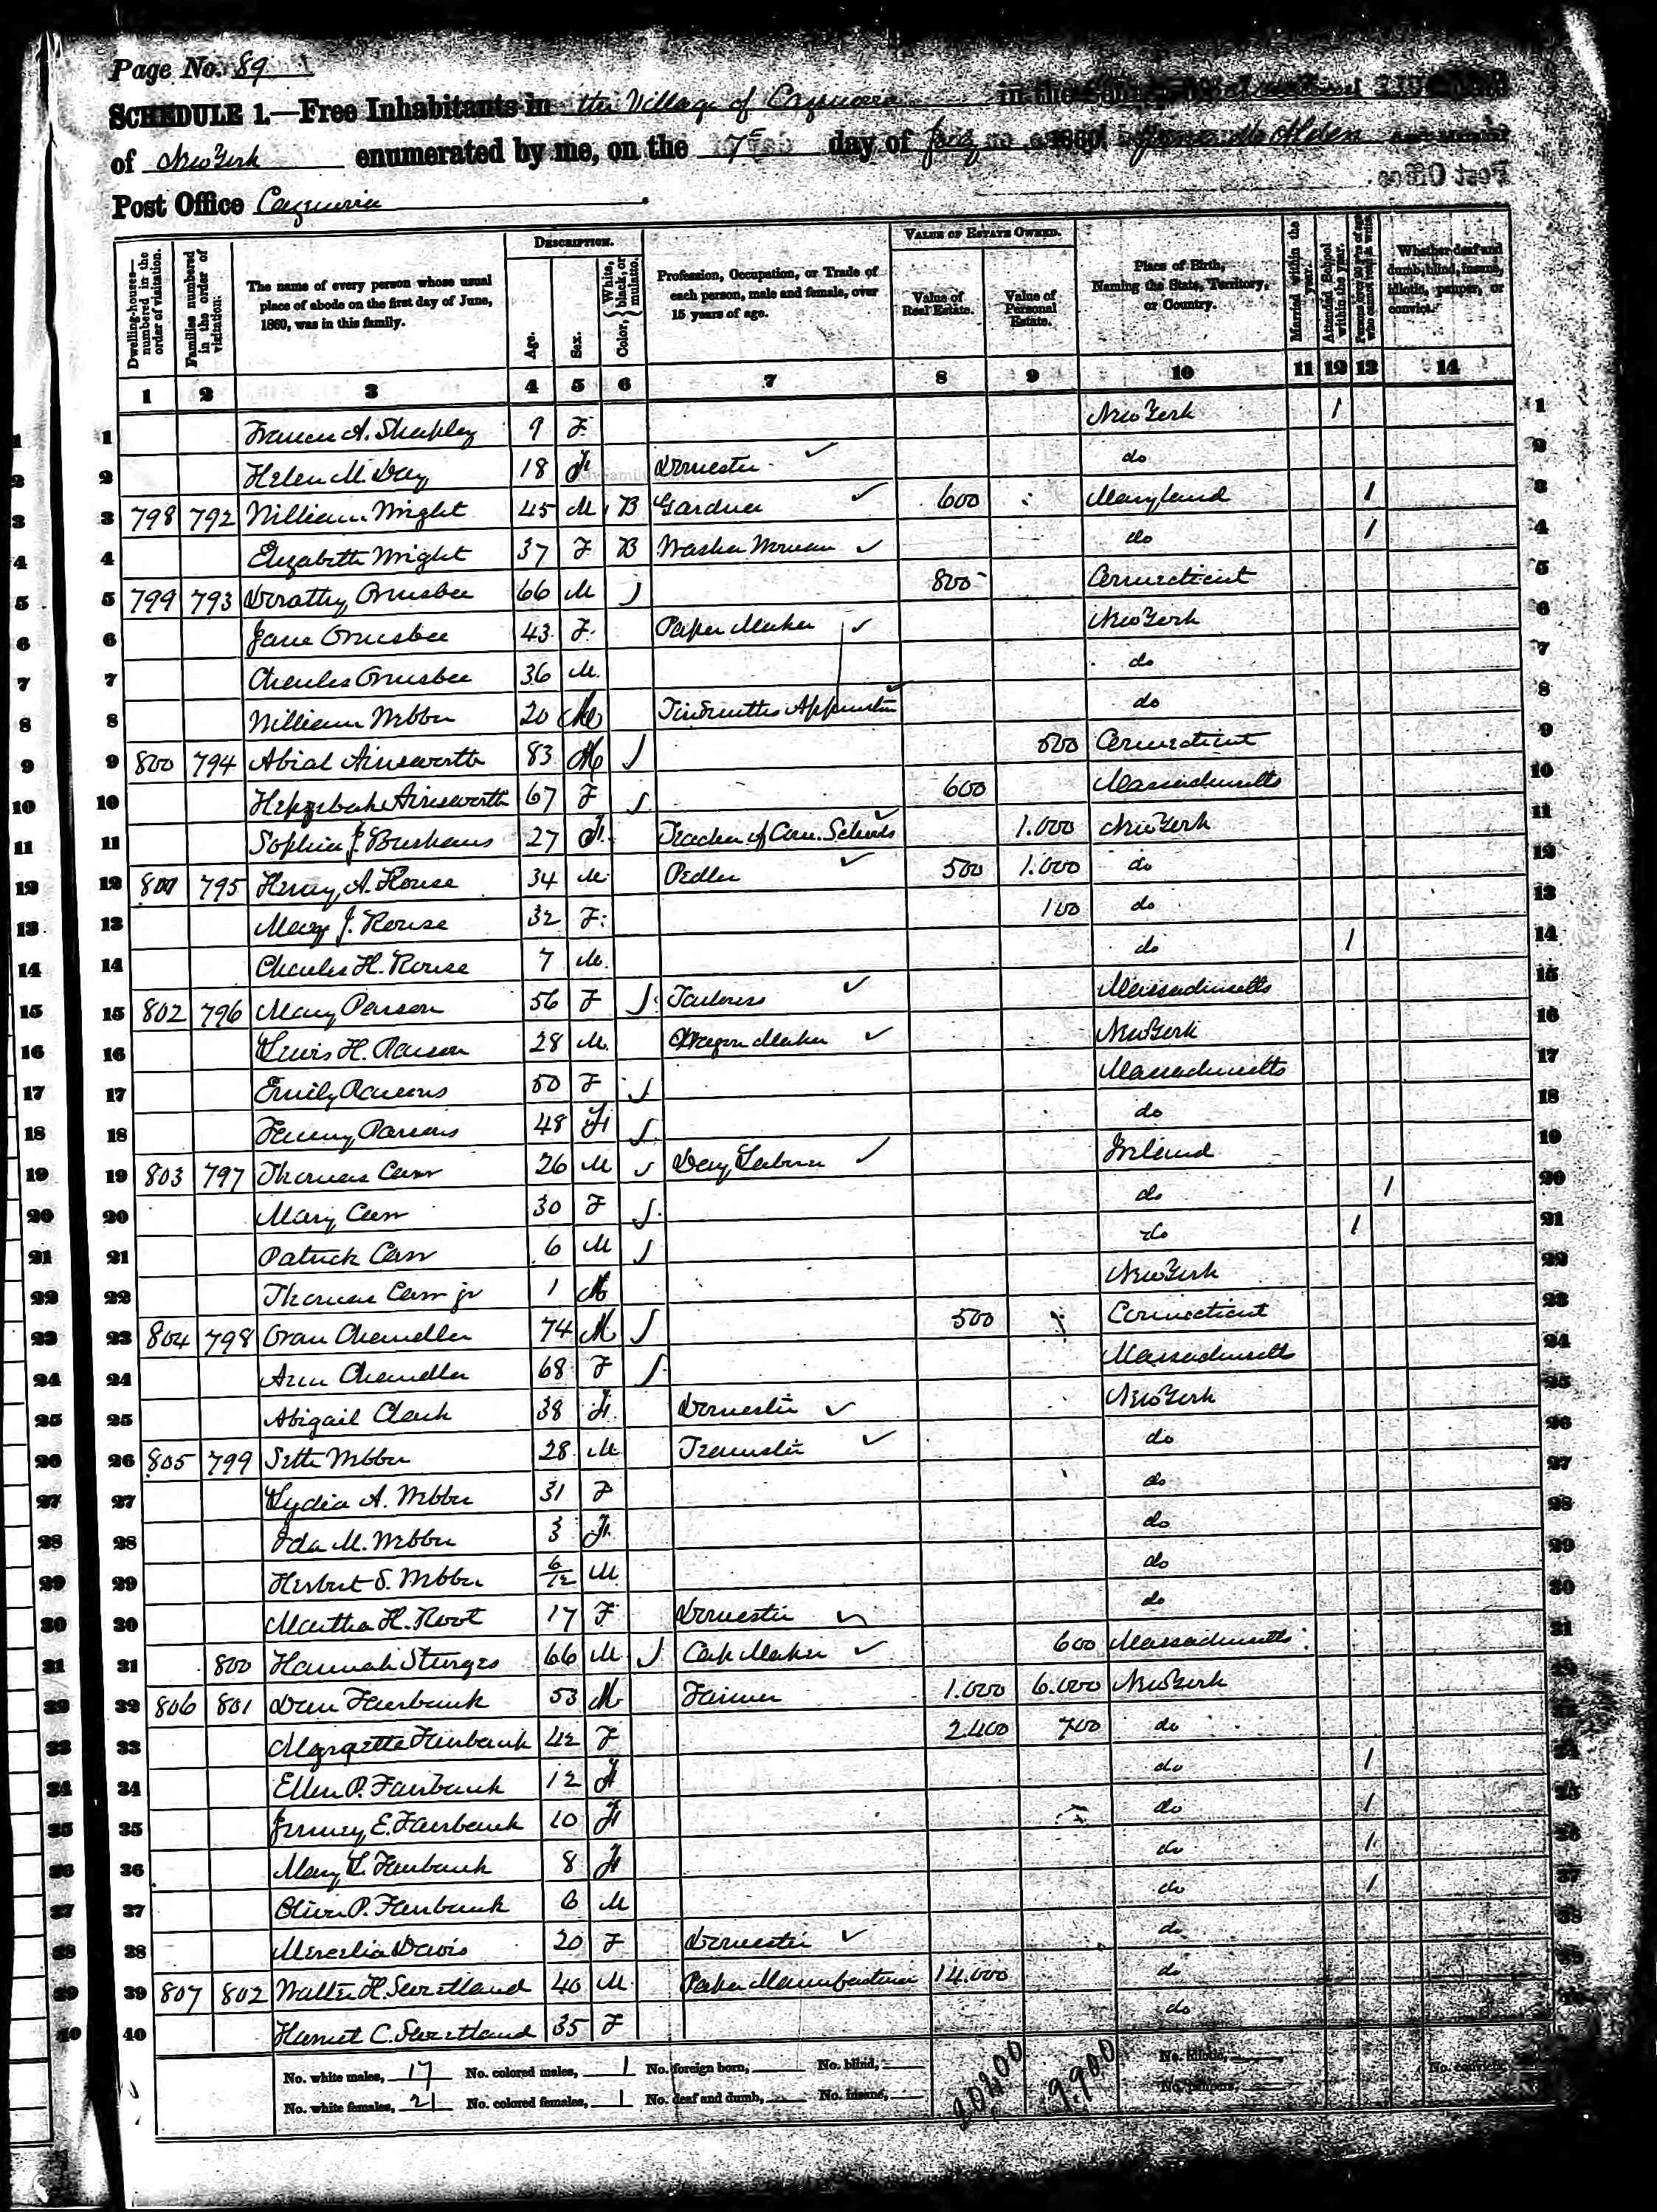 Page No. 89
SCHEDULE 1.—Free Inhabitants in the Village of Cazenovia in the
of New York enumerated by me, on the 7th day of July 1860. Alden
Post Office
Post Office Cazenovia
Dwelling-houses—numbered in the order of visitation. Families numbered in the order of visitation. The name of every person whose usual place of abode on the first day of June, 1860, was in this family. DESCRIPTION. Age. Sex. Color, {White, black, or mulatto. Profession, Occupation, or Trade of each person, male and female, over 15 years of age. VALUE OF ESTATE OWNED. Value of Real Estate. Value of Personal Estate. Place of Birth, Naming the State, Territory, or Country. Married within the year. Attended School within the year. Persons over 20 y'rs of age who cannot read & write. Whether deaf and dumb, blind, insane, idiotic, pauper, or convict.
1 2 3 4 5 6 7 8 9 10 11 12 13 14
1 A. Shapley 9 F New York 1 1
2 Helen M. Day 18 F Domestic do 2
3 798 792 William Wright 45 M B Gardner 600 Maryland 1 3
4 Elizabeth Wright 37 F B Washer Woman do 1 4
5 799 793 Dorathy Ormsbee 66 M 800 Connecticut 5
6 Jane Ormsbee 43 F Paper Maker New York 6
7 Charles Ormsbee 36 M do 7
8 William Webber 20 M Tinsmiths Apprentice do 8
9 800 794 Abial Ainsworth 83 M 500 Connecticut 9
10 Ainsworth 67 F 600 Massachusetts 10
11 Sophia J. 27 F Teacher of Com. Schools 1.000 New York 11
12 801 795 Henry A. Rouse 34 M Pedler 500 1.000 do 12
13 Mary J. Rouse 32 F 100 do 13
14 Charles H. Rouse 7 M do 1 14
15 802 796 Mary Parson 56 F Tailoress Massachusetts 15
16 Lewis H. Parson 28 M Wagon Maker New York 16
17 Emily Parsons 50 F Massachusetts 17
18 Parsons 48 F do 18
19 803 797 Thomas Carr 26 M Day Laborer Ireland 19
20 Mary Carr 30 F do 1 20
21 Patrick Carr 6 M do 1 21
22 Thomas Carr jr 1 M New York 22
23 804 798 Oran Chandler 74 M 500 Connecticut 23
24 Ann Chandler 68 F Massachusetts 24
25 Abigail Clark 38 F Domestic New York 25
26 805 799 Seth Webber 28 M Teamster do 26
27 Lydia A. Webber 31 F do 27
28 Ida M. Webber 3 F do 28
29 Herbert S. Webber 6/12 M do 29
30 Martha H. Root 17 F Domestic do 30
31 800 Hannah Sturges 66 M Cap Maker 600 Massachusetts 31
32 806 801 Dan Fairbank 53 M Farmer 1.000 6.000 New York
33 Fairbank 42 F 2.400 700 do
34 Ellen P. Fairbank 12 F do 1 34
35 E. Fairbank 10 F do 1 35
36 Mary L. Fairbank 8 F do 1 36
37 Oliver P. Fairbank 6 M do 1 37
38 Davis 20 F Domestic do 38
39 807 802 Walter H. Sweetland 40 M Paper Manufacturer 14.000 do
40 Harriet C. Sweetland 35 F do
No. white males, 17 No. colored males, 1 No. foreign born, No. blind, No. idiotic,
No. white females, 21 No. colored females, 1 No. deaf and dumb, No. insane, No. paupers, No. convicts,
9.900